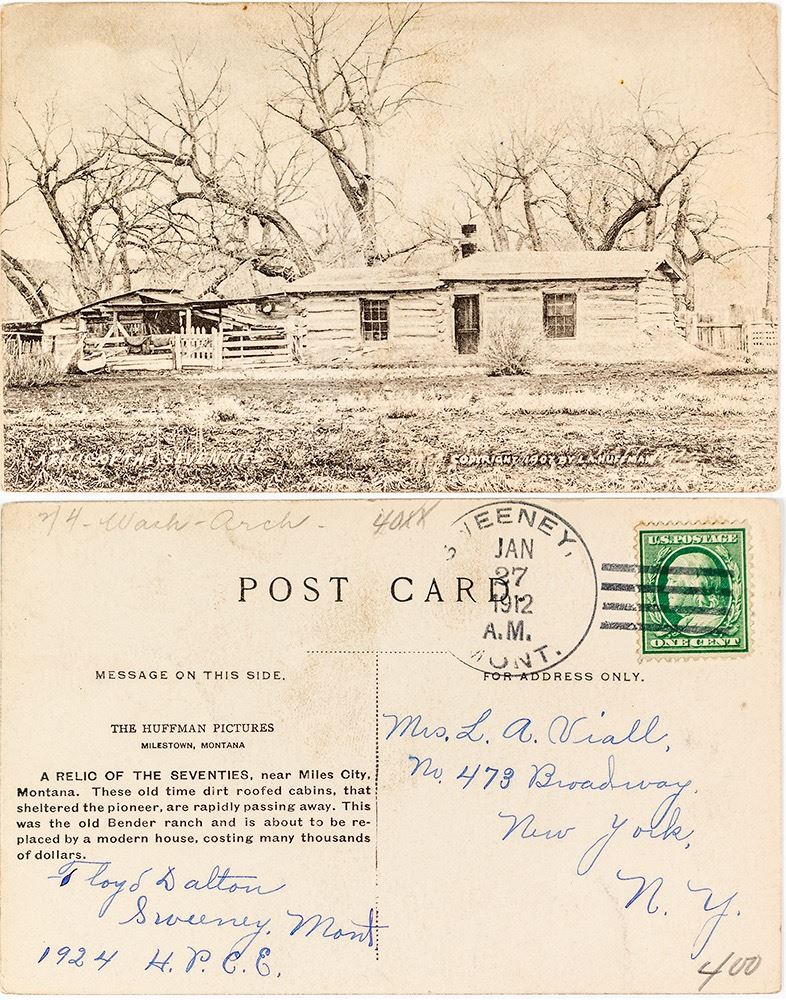 A RELIC OF THE SEVENTIES
COPYRIGHT 1907 BY L.A. HUFFMAN
Wash-Arch-
SWEENEY,
JAN
27
1912
A.M.
MONT.
U.S. POSTAGE
ONE CENT
POST CARD.
MESSAGE ON THIS SIDE.
FOR ADDRESS ONLY.
THE HUFFMAN PICTURES
MILESTOWN, MONTANA
A RELIC OF THE SEVENTIES, near Miles City,
Montana. These old time dirt roofed cabins, that
sheltered the pioneer, are rapidly passing away. This
was the old Bender ranch and is about to be re-
placed by a modern house, costing many thousands
of dollars.
Floyd Dalton
Sweeney, Mont.
1924 H. P. C. E.
Mrs. L. A. Viall,
No. 473 Broadway,
New York,
N. Y.
400